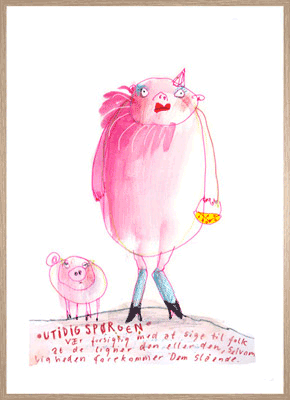 UTIDIG SPØRGEN
VÆr forsigtig med at sige til folk
at de ligner den eller den, Selvom
ligheden forekommer Dem Slående.